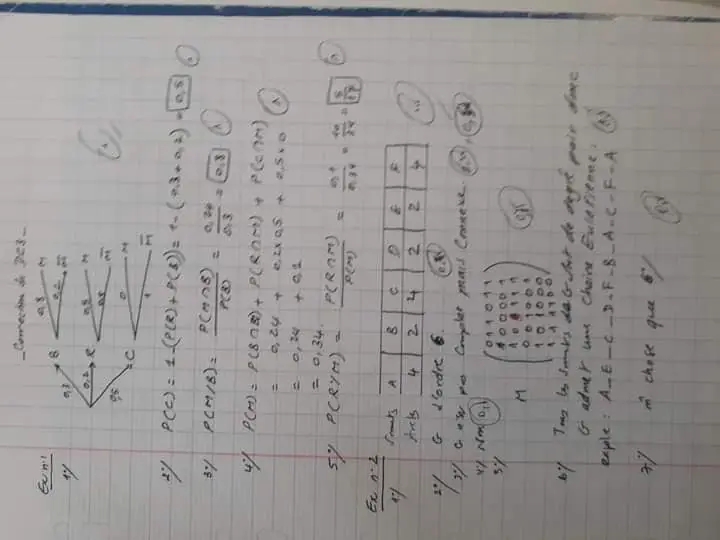 - Correction du DC3 -
Ex n:1
1°/
0,3 B 0,8 M
0,2 M̅
0,2 R 0,5 M
0,5 M̅
0,5 C 0 M
1 M̅
2°/ P(C) = 1 - (P(R) + P(B)) = 1 - (0,3 + 0,2) = 0,5
3°/ P(M/B) = P(M∩B) / P(B) = 0,24 / 0,3 = 0,8
4°/ P(M) = P(B∩M) + P(R∩M) + P(C∩M)
= 0,24 + 0,2x0,5 + 0,5x0
= 0,24 + 0,1
= 0,34.
5°/ P(R/M) = P(R∩M) / P(M) = 0,1 / 0,34 = 10 / 34 = 5 / 17
Ex n:2
1°/ Smts A B C D E F
4 2 4 2 2 4
2°/ G d'ordre 6.
3°/ G est pas Complet mais Connexe.
4°/ Non
5°/
M
0 1 1 0 1 1
1 0 0 0 0 1
0 1 0 1 0 0 0
1 1 1 1 0 0
6°/ Tous les smts de G sont de degré pair donc
G admet une chaîne Eulérienne:
exple: A-E-C-D-F-B-A-C-F-A
7°/ m̂ chose que 6°/